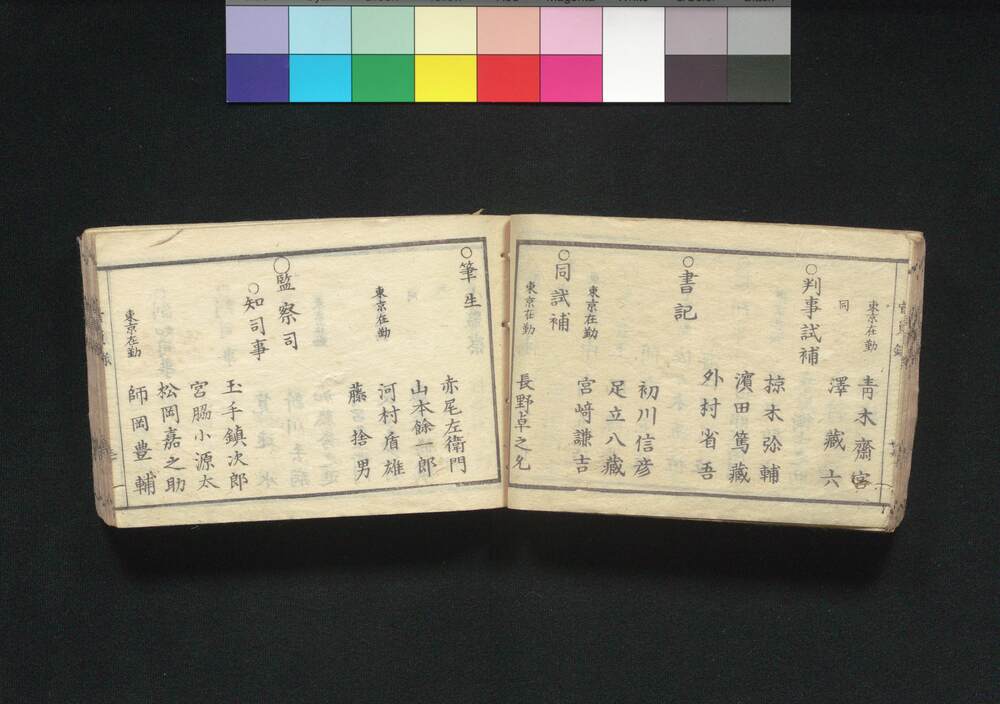 東京在勤
青木齋宮
同
澤藏六
○判事試補
椋木弥輔
濱田篤藏
外村省吾
○書記
初川信彦
足立八藏
東京在勤
宮﨑謙吉
○同試補
東京在勤
長野卓之允
○筆生
赤尾左衛門
山本餘一郎
河村盾雄
東京在勤
藤捨男
○監察司
○知司事
玉手鎮次郎
宮脇小源太
松岡嘉之助
東京在勤
師岡豊輔